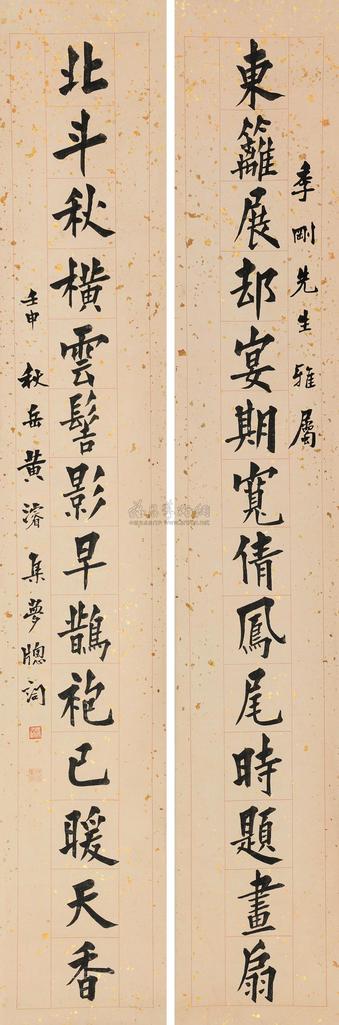 東籬展却宴期寬倩鳳尾時題畫扇
季剛先生雅屬
北斗秋橫雲髻影早鵲袍已暖天香
壬申 秋岳黄濬集夢牕詞